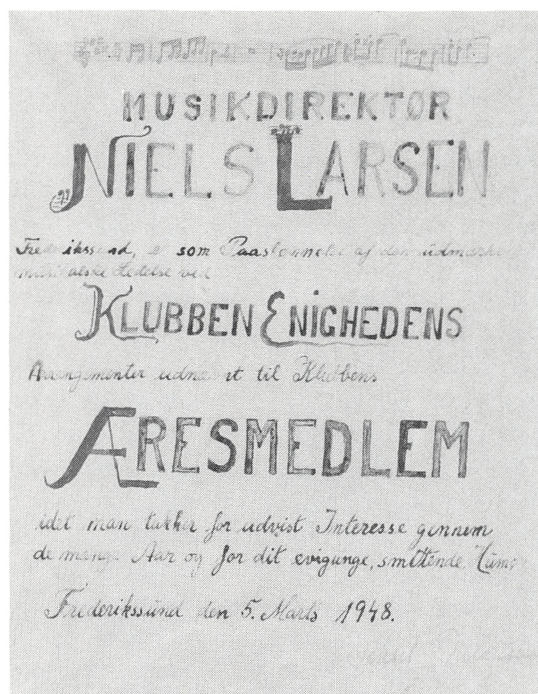 MUSIKDIREKTØR
NIELS LARSEN
Frederikssund, er som Paaskønnelse af den udmærkede
musikalske Ledelse ved
KLUBBEN ENIGHEDENS
Arrangementer udnævnt til Klubbens
ÆRESMEDLEM
idet man takker for udvist Interesse gennem
de mange Aar og for dit evigunge, smittende
Frederikssund den 5. Marts 1948.